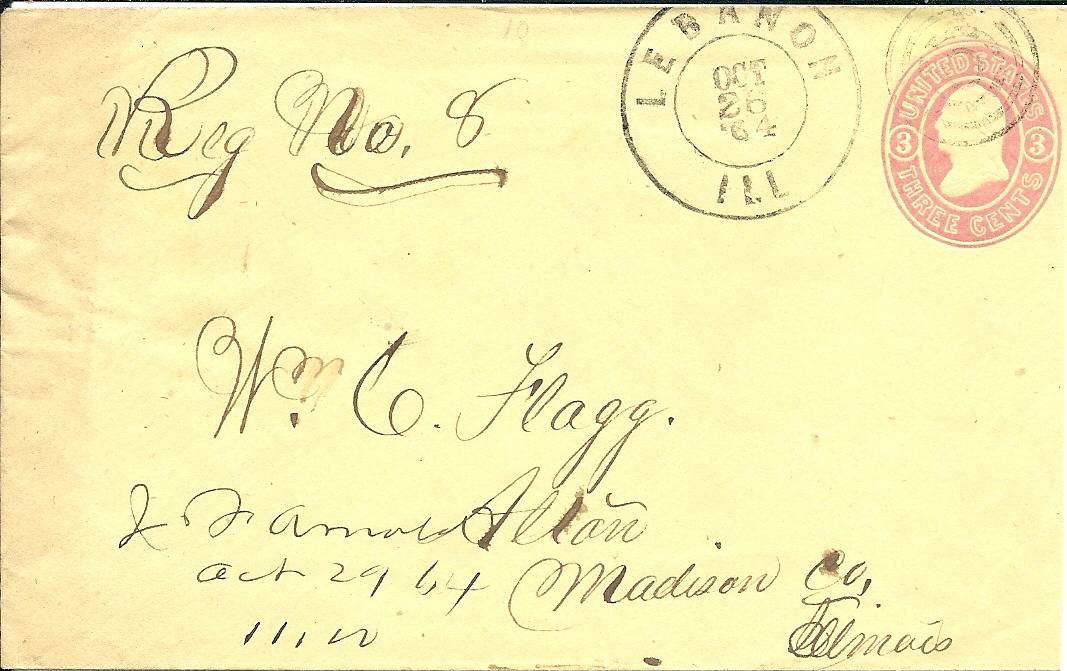 10
Reg No. 8
LEBANON
OCT
26
'64
ILL
UNITED STATES
3 3
THREE CENTS
Wm. C. Flagg.
Alton
Madison Co,
Illinois
Arnold
Oct 29 64